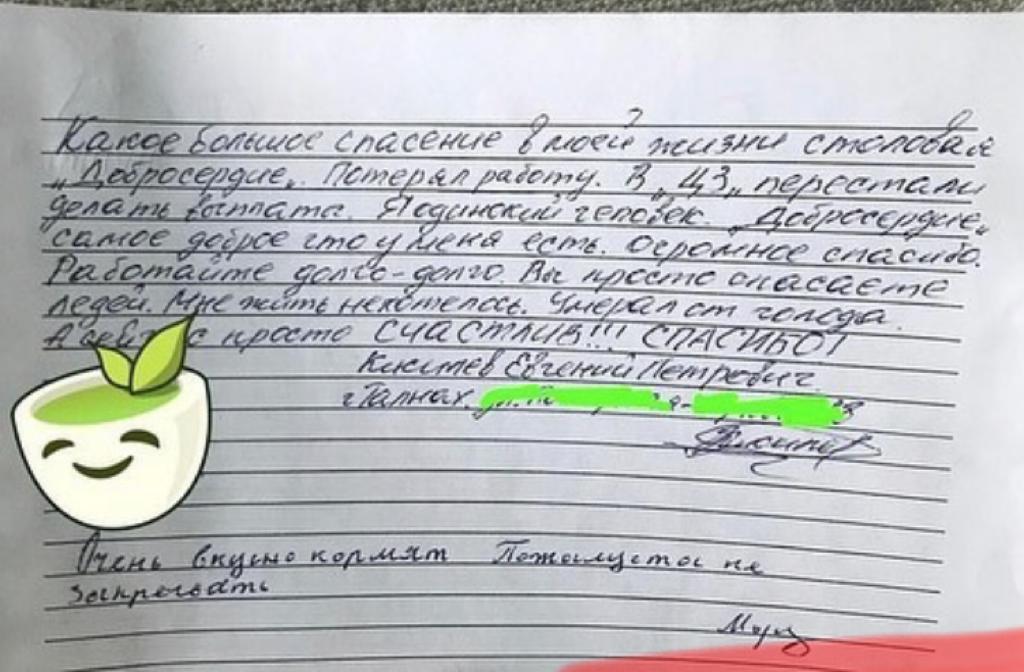 Какое большое спасение в моей жизни столовая
„Добросердие„. Потерял работу. В „ЦЗ„ перестали
делать выплата. Я одинокий человек. „Добросердие„
самое доброе что у меня есть. Огромное спасибо.
Работайте долго-долго. Вы просто спасаете
людей. Мне жить нехотелось. Умерал от голода.
А сейчас просто СЧАСТЛИВ!!! СПАСИБО!
Евгений Петрович.
г Талнах.
Очень вкусно кормят Пожалуста не
закрывать